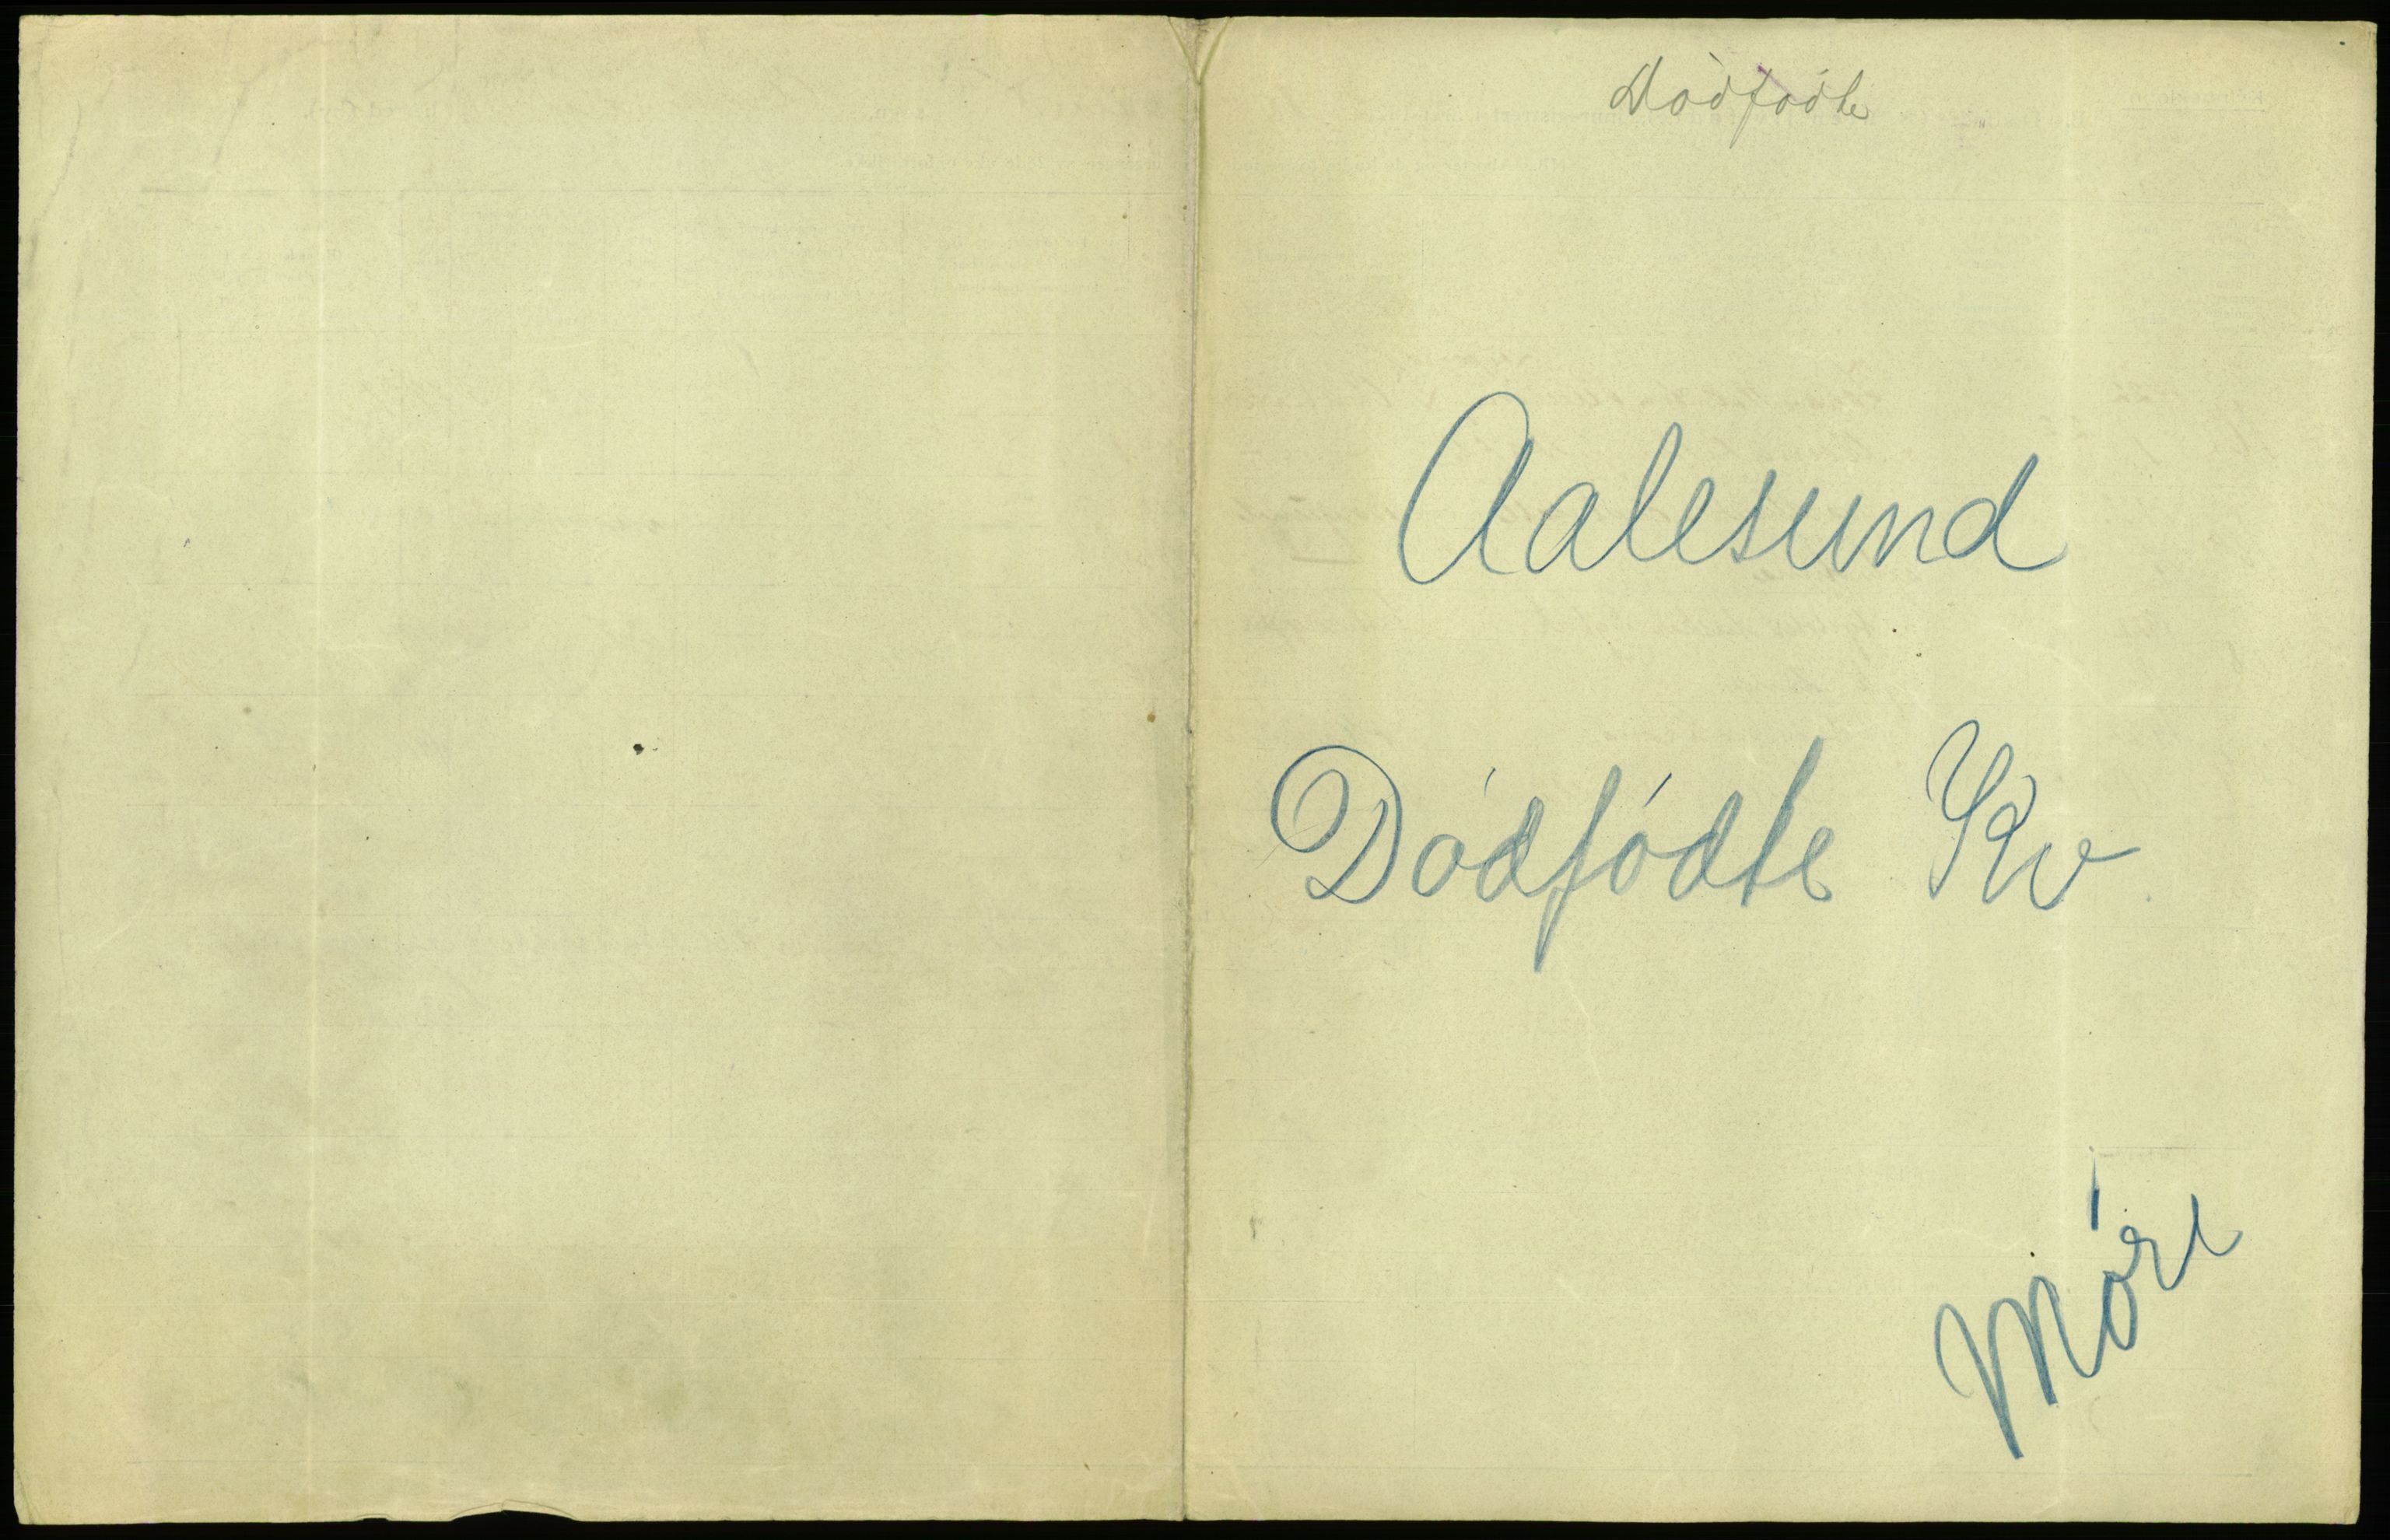 Dódfódte
Aalesund
Dódfódte Kv
Móre